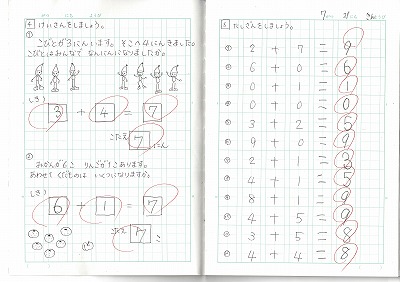 4 けいさんをしましょう。
①
こびとが3にんいます。そこへ4にんきました。
こびとはみんなで なんにんになりましたか。
しき
3 + 4 = 7
こたえ 7 にん
②
みかんが6こ りんごが1こあります。
あわせて くだものは いくつになりますか。
しき
6 + 1 = 7
こたえ 7 こ
5 たしざんをしましょう。
① 2 + 7 = 9
6 + 0 = 6
0 + 1 = 1
0 + 0 = 0
3 + 2 = 5
9 + 0 = 9
2 + 1 = 3
4 + 1 = 5
8 + 1 = 9
4 + 5 = 9
3 + 5 = 8
4 + 4 = 8